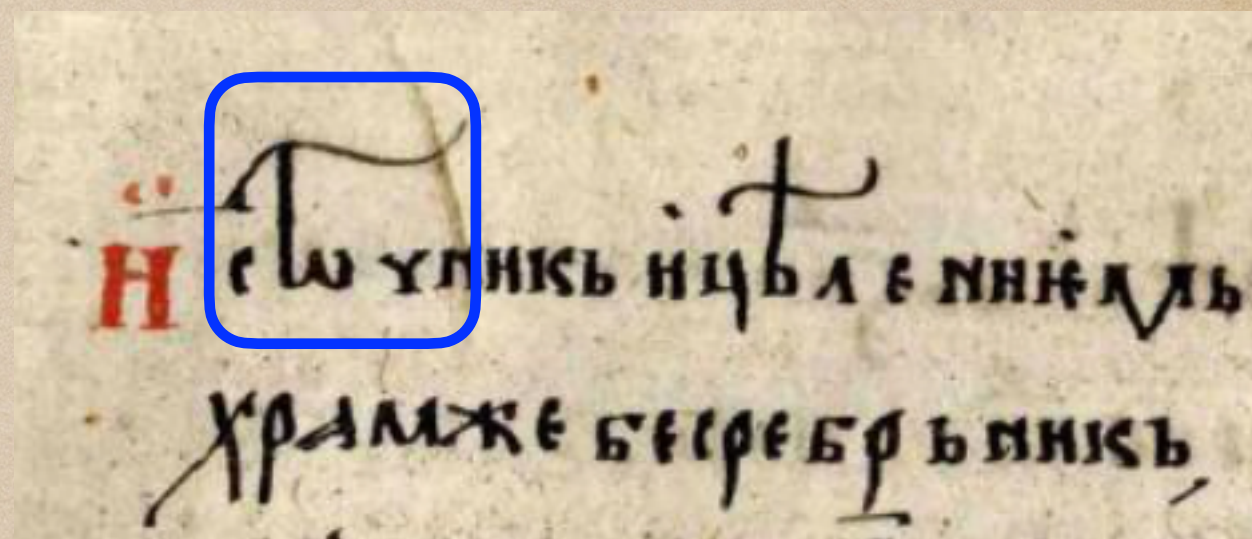 Истѡчникь ицѣлениѥмь
храмже бесребрьникь